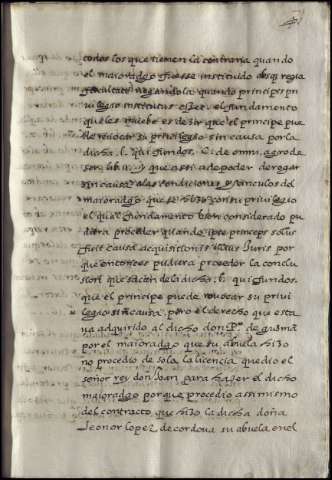 todos los que tienen la contraria quando
el maioradgo fuesse instituido absq̃ regia
facultate negandola quando principis pri
uilegio institutus esset, el fundamento
que les muebe es dezir que el principe pue
de reuocar su priuilegio sin causa por la
dicha .l. qui fundos.
que a si a de poder derogar
sin causa a las condiciones y vinculos del
maioradgo que se hizo con su priuilegio
el qual fundamento bien considerado pu
diera proceder quando ipse princeps solus
fuit causa acquisitionis illius iuris por
que entonces pudiera proceder la conclu
sion que sacan de la dicha .l. qui fundos.
que el principe puede reuocar su priui
legio sin causa, pero el derecho que esta
ua adquirido al dicho don P.º de guzmã
por el maioradgo que su abuela hizo
no procedio de sola la licencia que dio el
señor rey don Joan para hazer el dicho
maioradgo porque procedio assimismo
del contracto que hizo la dicha doña
Leonor lopez de cordoua su abuela en el